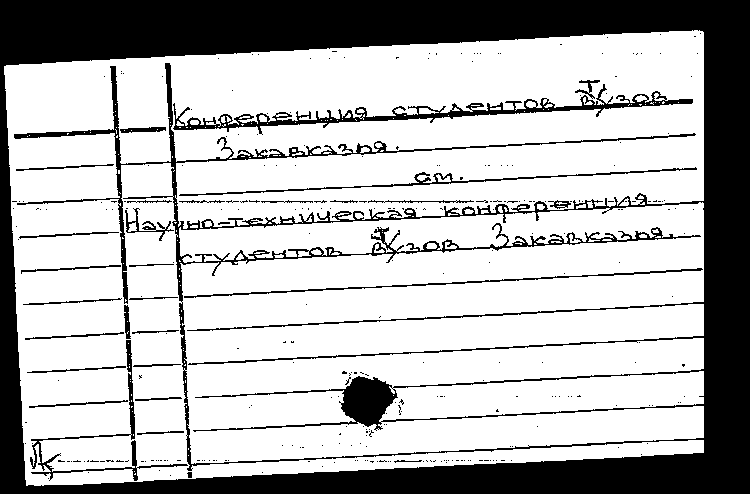 Конференция студентов втузов
Закавказья.
см.
Научно-техническая конференция
студентов втузов Закавказья.